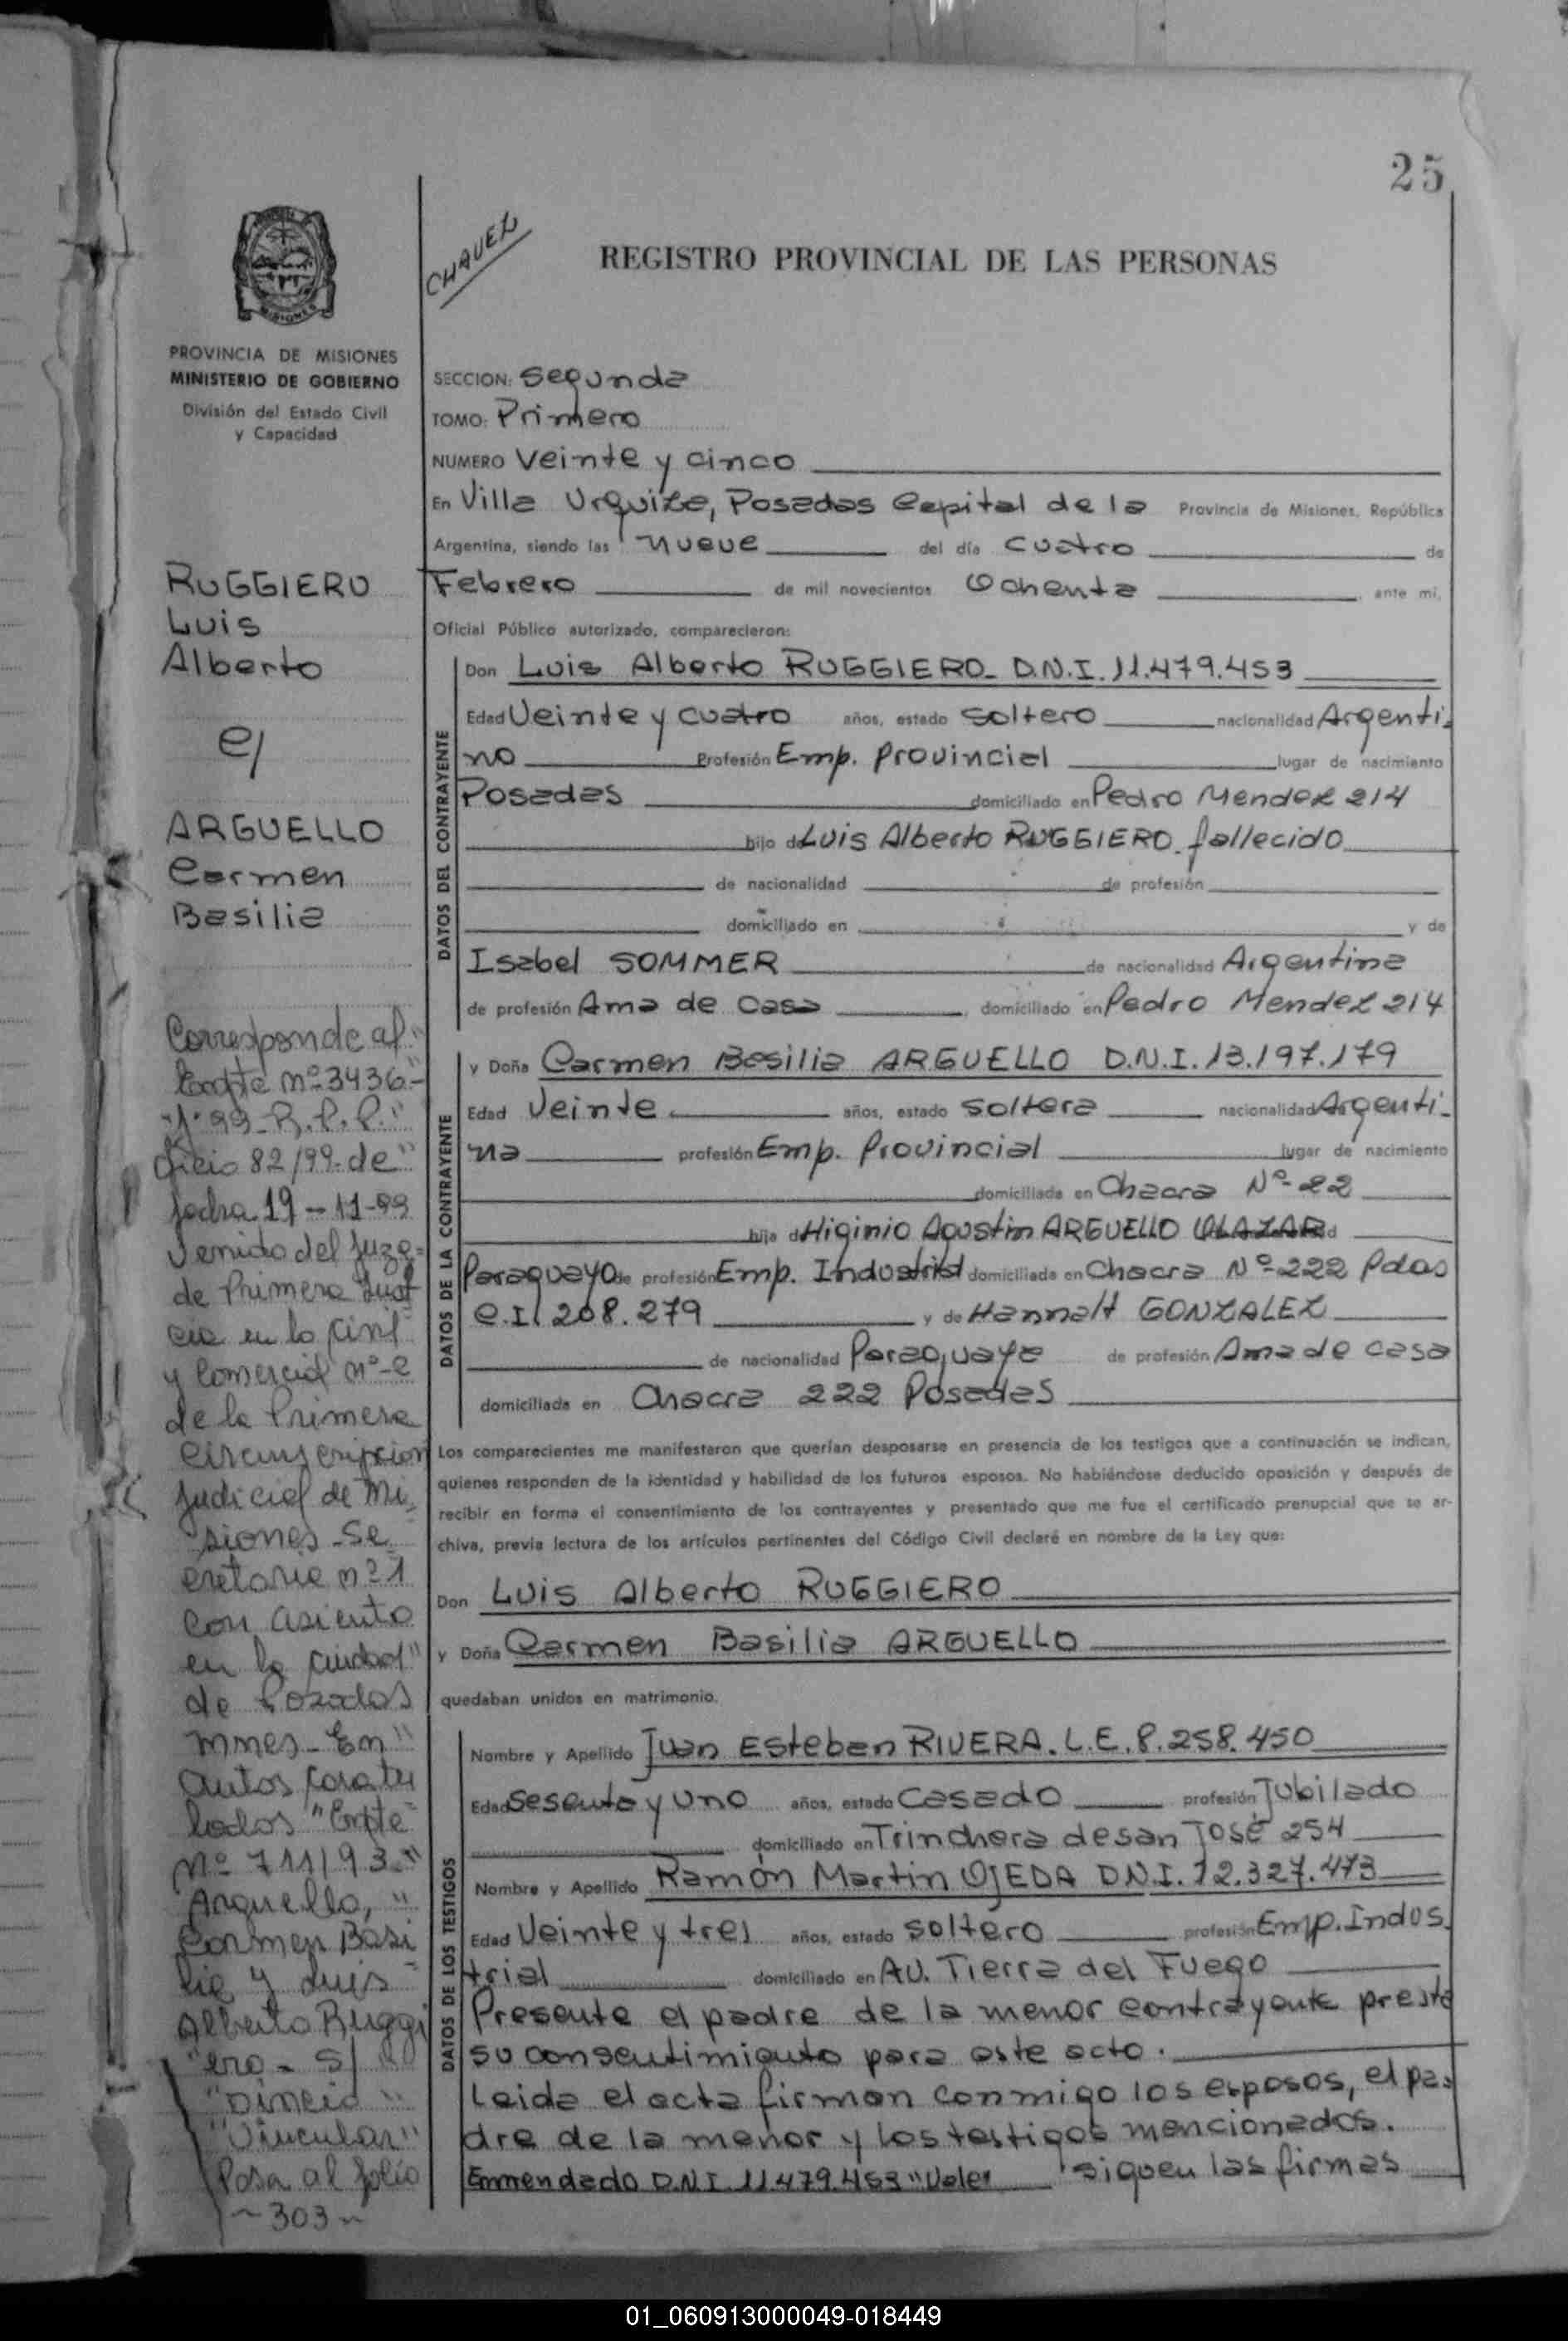 25
CHAVEZ
REGISTRO PROVINCIAL DE LAS PERSONAS
PROVINCIA DE MISIONES
MINISTERIO DE GOBIERNO
División del Estado Civil
y Capacidad
SECCION: Segunda
TOMO: Primero
NUMERO Veinte y cinco
En Villa Urquiza, Posadas Capital de la Provincia de Misiones, República
Argentina, siendo las nueve del día cuatro de
Febrero de mil novecientos Ochenta ante mí,
Oficial Público autorizado, comparecieron:
RUGGIERO
Luis
Alberto
e/
ARGUELLO
Carmen
Basilia
DATOS DEL CONTRAYENTE
Don Luis Alberto RUGGIERO- D.N.I. 11.479.453
Edad Veinte y cuatro años, estado soltero nacionalidad Argenti-
no Profesión Emp. Provincial lugar de nacimiento
Posadas domiciliado en Pedro Mendez 214
hijo de Luis Alberto RUGGIERO. fallecido
de nacionalidad de profesión
domiciliado en y de
Isabel SOMMER de nacionalidad Argentina
de profesión Ama de casa domiciliado en Pedro Mendez 214
DATOS DE LA CONTRAYENTE
y Doña Carmen Basilia ARGUELLO D.N.I. 13.197.179
Edad Veinte años, estado soltera nacionalidad Argenti-
na profesión Emp. Provincial lugar de nacimiento
domiciliada en Chacra Nº-22
hija de Higinio Agustin ARGUELLO
Paraguayo de profesión Emp. Industrial domiciliada en Chacra Nº-222 Pdas
C.I. 208.279 y de GONZALEZ
de nacionalidad Paraguaya de profesión Ama de casa
domiciliada en Chacra 222 Posadas
Los comparecientes me manifestaron que querían desposarse en presencia de los testigos que a continuación se indican,
quienes responden de la identidad y habilidad de los futuros esposos. No habiéndose deducido oposición y después de
recibir en forma el consentimiento de los contrayentes y presentado que me fue el certificado prenupcial que se ar-
chiva, previa lectura de los artículos pertinentes del Código Civil declaré en nombre de la Ley que:
Don Luis Alberto RUGGIERO
y Doña Carmen Basilia ARGUELLO
quedaban unidos en matrimonio.
DATOS DE LOS TESTIGOS
Nombre y Apellido Juan Esteban RIVERA. L.E. 8.258.450
Edad Sesenta y uno años, estado Casado profesión Jubilado
domiciliado en Trinchera de san José 254
Nombre y Apellido Ramón Martin OJEDA D.N.I. 12.327.473
Edad Veinte y tres años, estado soltero profesión Emp. Indus-
trial domiciliado en AV. Tierra del Fuego
Presente el padre de la menor contrayente presta
su consentimiento para este acto.
Leida el acta firman conmigo los esposos, el pa-
dre de la menor y los testigos mencionados.
Enmendado D.N.I. 11.479.453 "Vale" siguen las firmas
Corresponde al
Expte nº 3436-
99-R.P.P."
Oficio 82/99. de
fecha 19-11-99
Venido del Juzg-
de Primera Inst
cia en lo Civil
y Comercial nº-2
de la Primera
Circunscripcion
Judicial de Mi-
siones - Se
cretaria nº 1
con asiento
en la ciudad
de Posadas
Mnes- En
autos caratu
lados "Expte
Nº 711/93."
Arguello,
Carmen Basi
lia y Luis
Alberto Ruggi
ero - S/
"Divcio"
"Vincular"
Pasa al folio
~303~
01_060913000049-018449